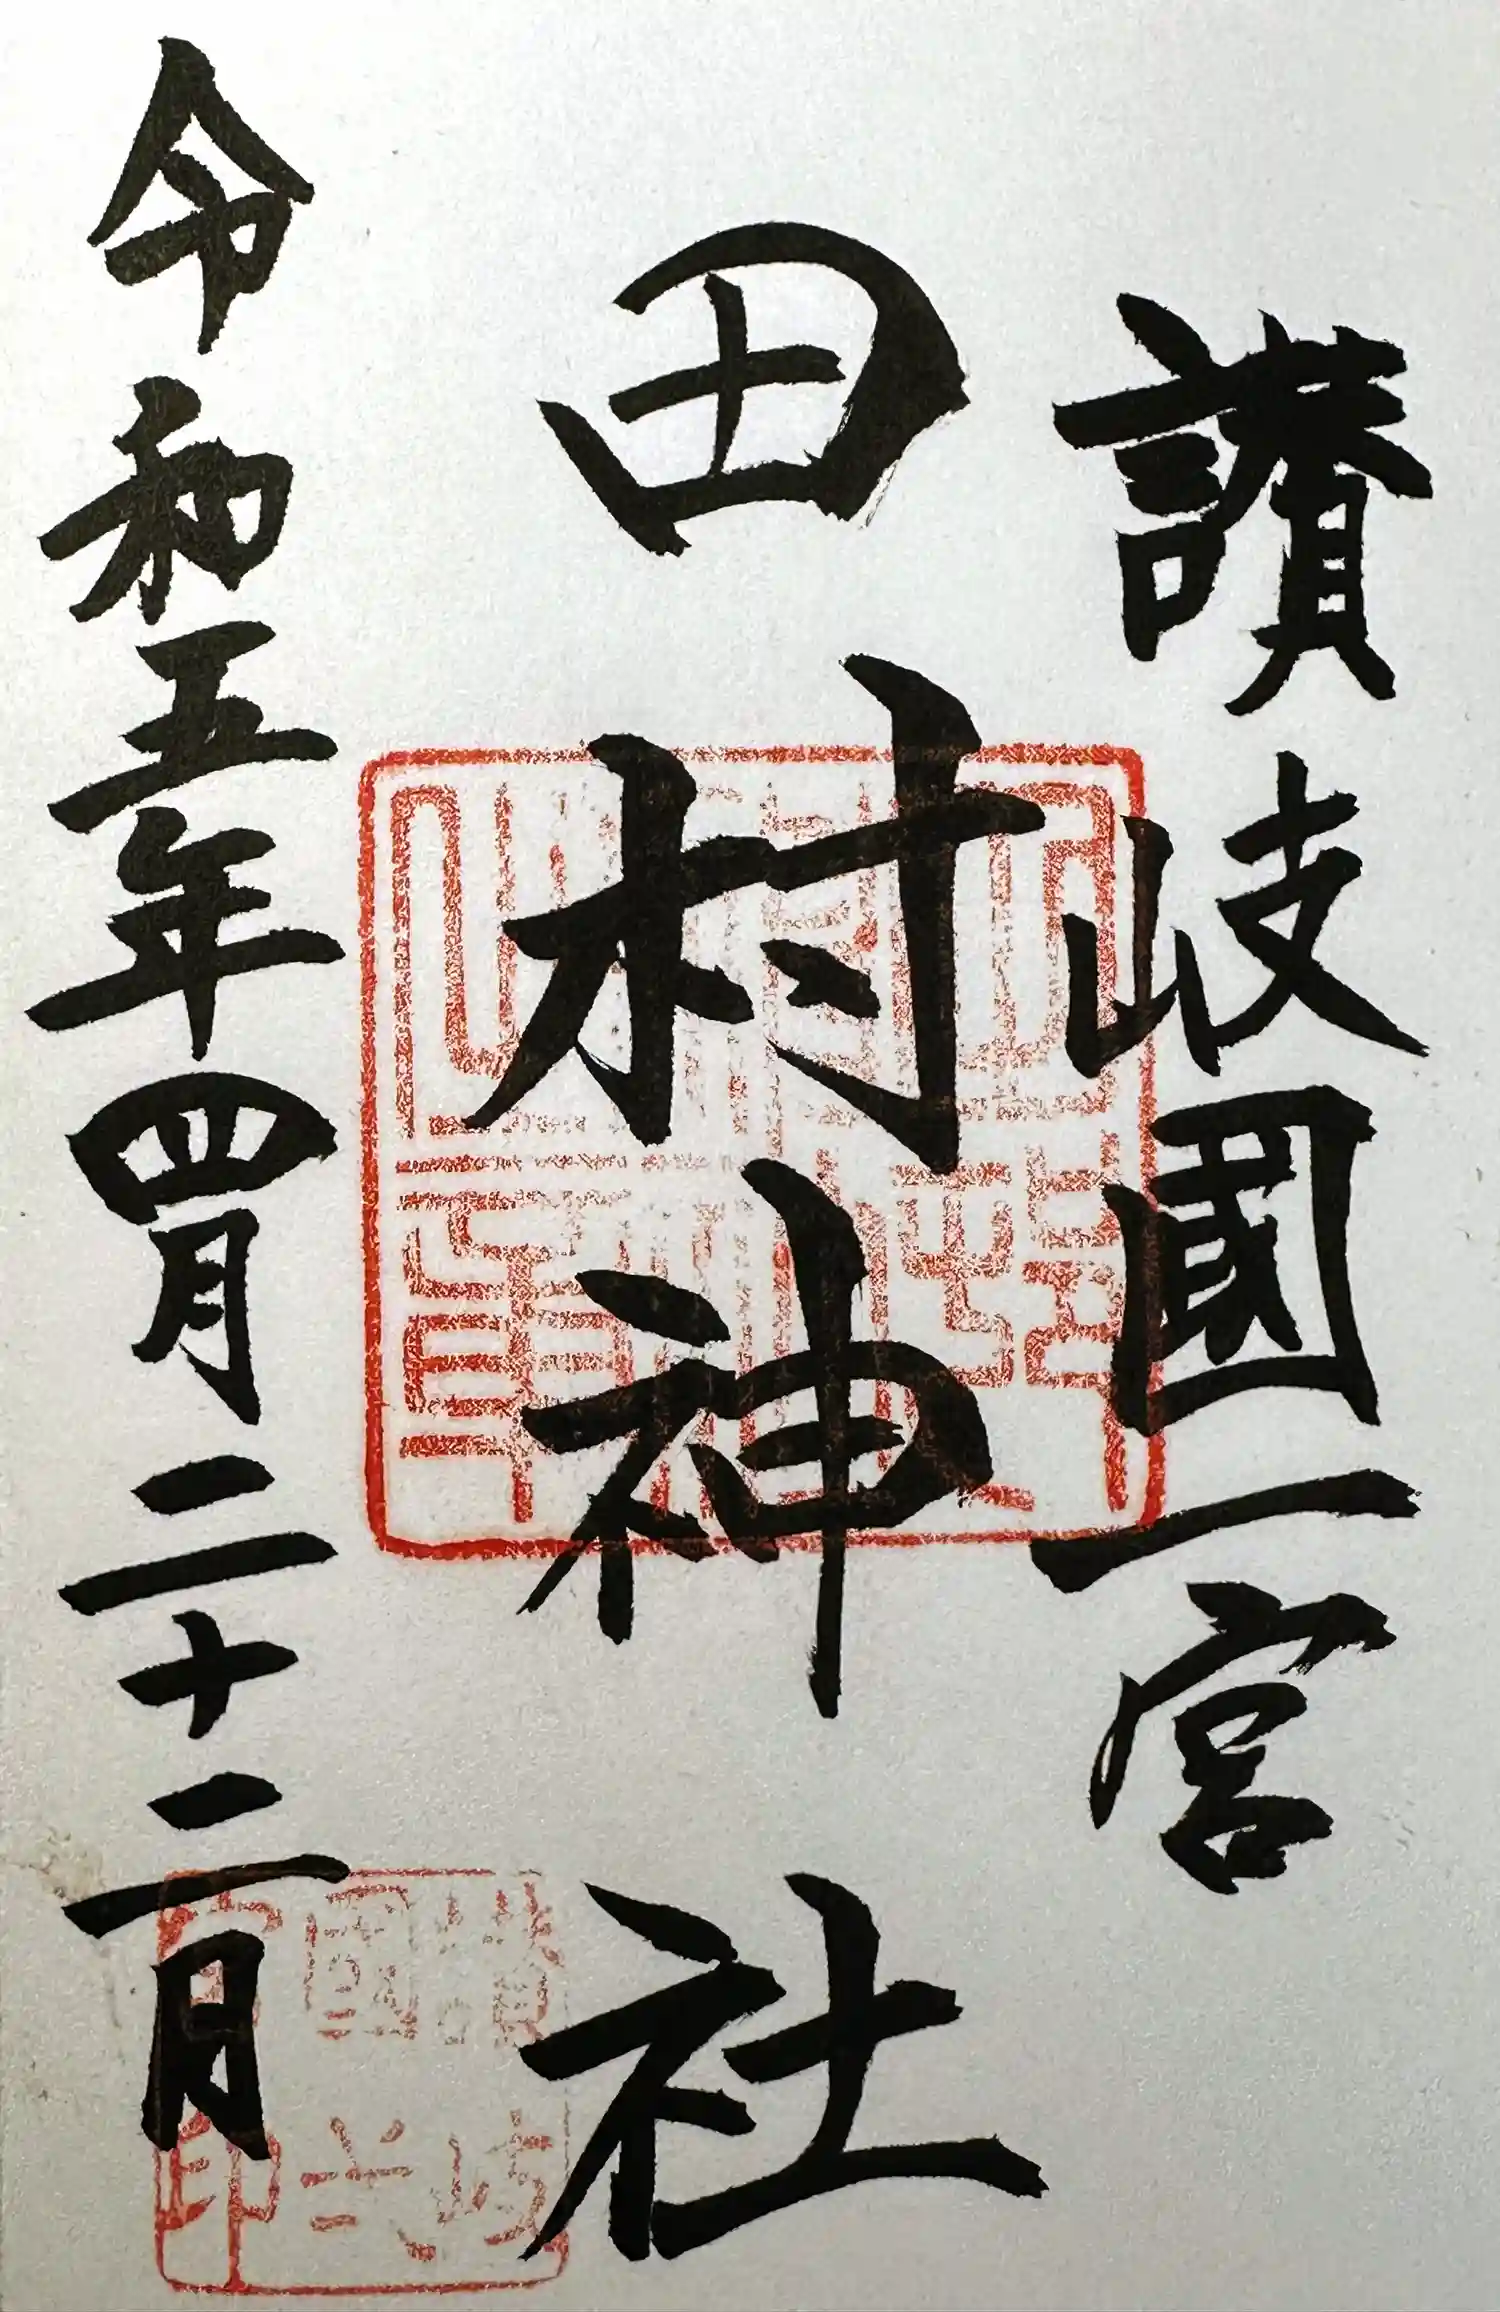 讃岐國一宮
田村神社
令和五年四月二十二日